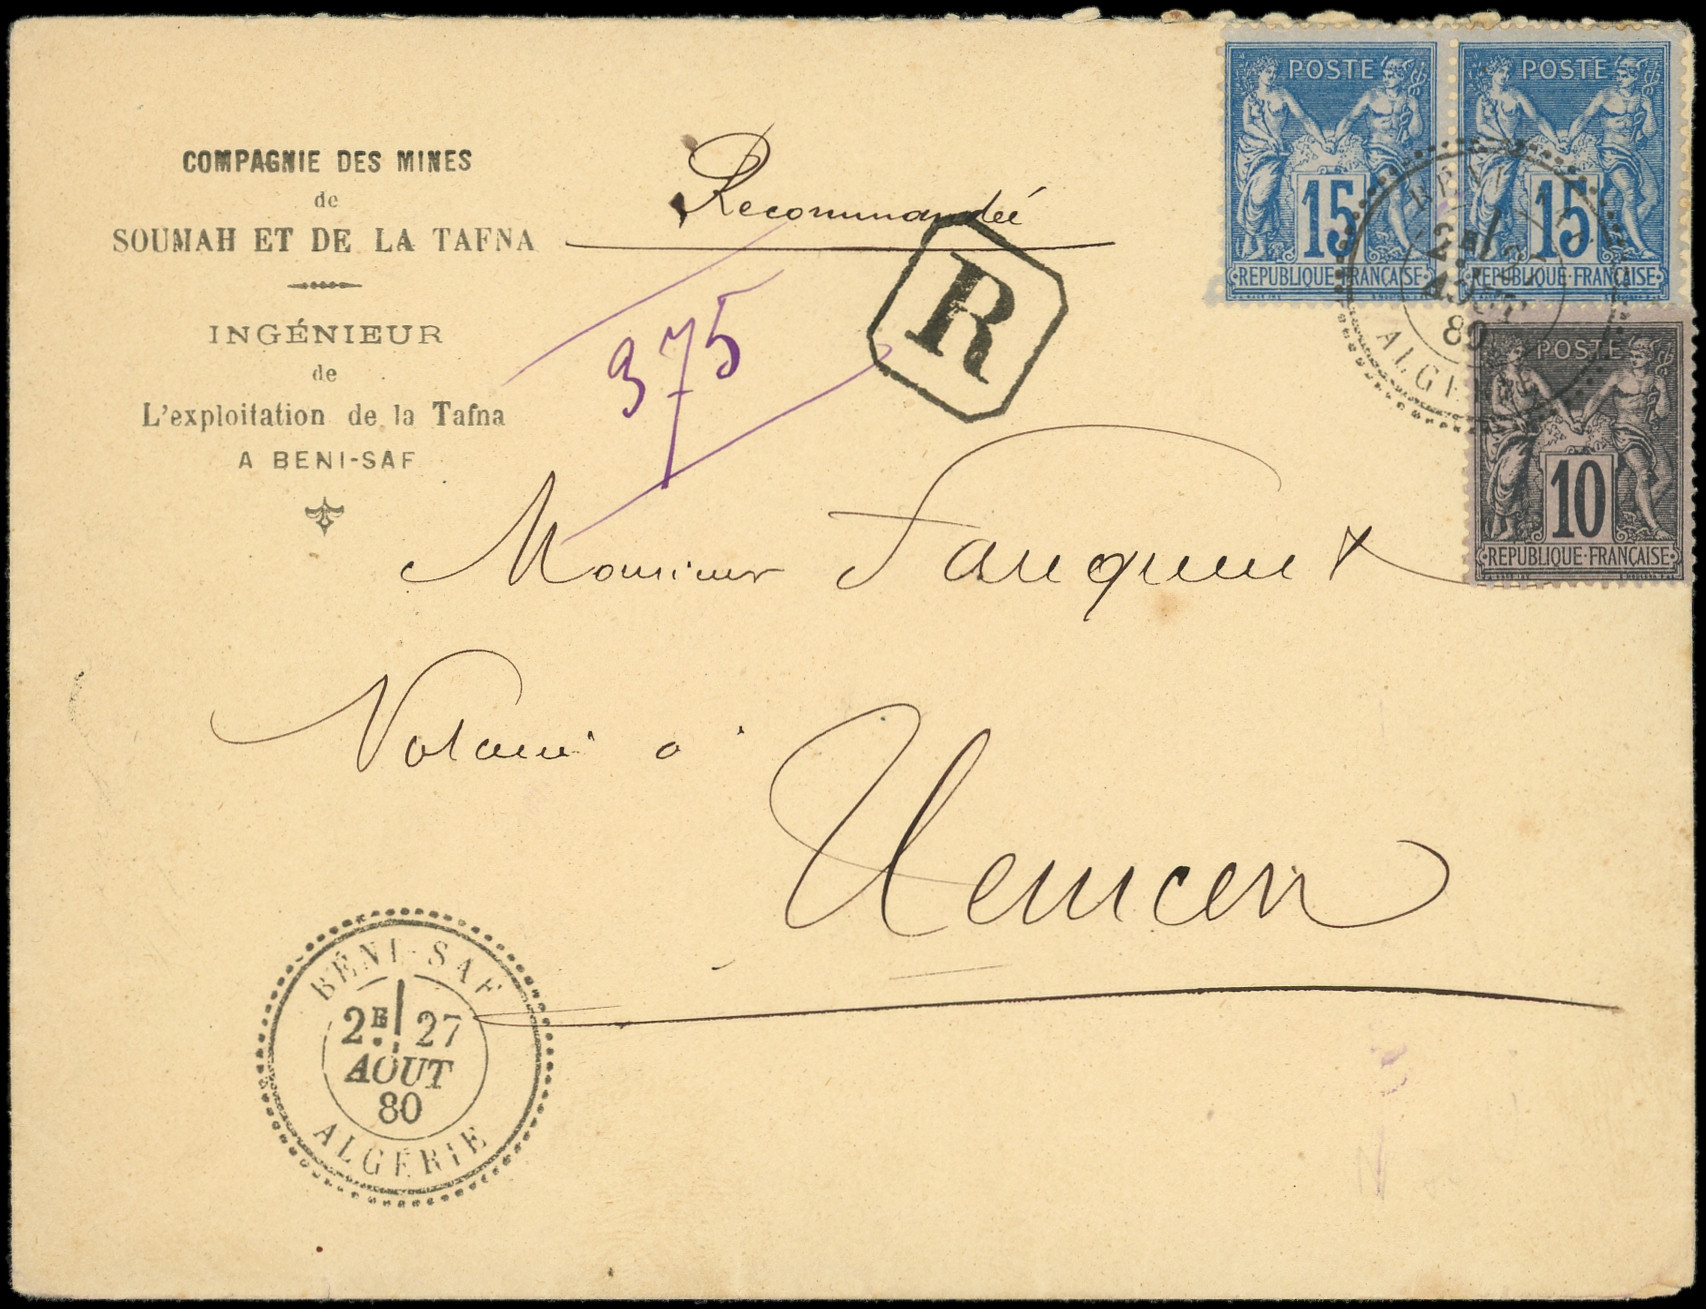 COMPAGNIE DES MINES
de
SOUMAH ET DE LA TAFNA
INGÉNIEUR
de
L'exploitation de la Tafna
A BENI-SAF
Recommandée
375
R
POSTE
15
REPUBLIQUE FRANÇAISE
POSTE
15
REPUBLIQUE FRANÇAISE
POSTE
10
REPUBLIQUE FRANÇAISE
BENI
2E
AOUT
80
ALGERIE
Monsieur
Notaire à
Tlemcen
BÉNI-SAF
2E 27
AOUT
80
ALGÉRIE